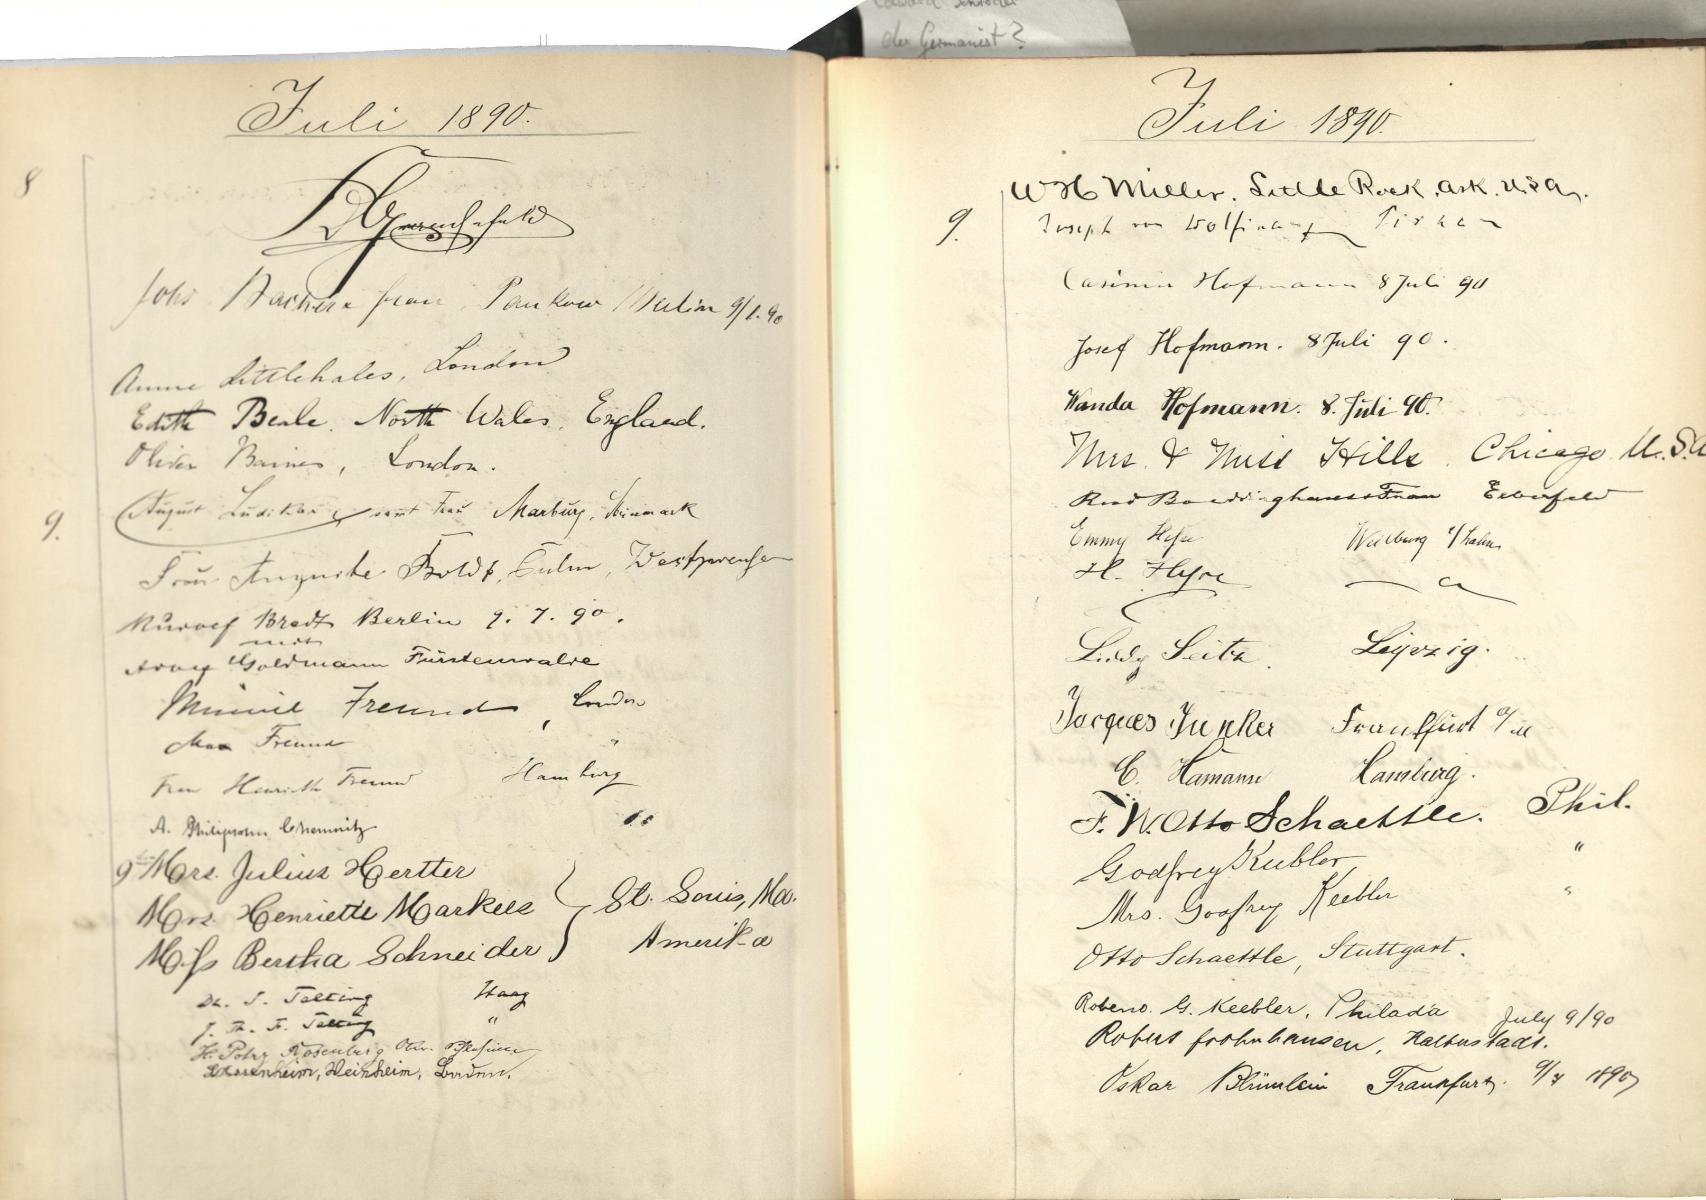 der Germanist?
Juli 1890.
8
Johs Frau Pankow Berlin 9/7.90
Annie Littlehales, London
Edith Beale. North Wales. England.
Oliver Baines, London.
9.
August Ludikar samt Frau Marburg, Steiermark
Frau Auguste Culm, Westpreussen
Rudolf Bredt Berlin 9. 7. 90.
Goldmann Fürstenwalde
Minnie Freund, London
Max Freund "
Frau Henriette Freund Hamburg
A. Philipsohn Chemnitz
9 Mrs. Julius Hertter
Mrs. Henriette Markees St. Louis, Mo.
Miss Bertha Schneider Amerika
Dr. J. Telting Haag
J. Th. F. Telting "
Rosenberg
Weinheim, London.
Juli 1890.
W H Miller. Little Rock. Ark. U.S.A.
9.
Joseph von
Casimir Hofmann 8 Juli 90
Josef Hofmann. 8 Juli 90.
Wanda Hofmann. 8. Juli 90.
Mrs. & Miss Hills. Chicago U.S.A
Rud Boeddinghaus & Frau Elberfeld
Emmy Weilburg a/Lahn
H.
Seitz. Leipzig.
Jacques Junker Frankfurt a/M
C. Hamann Hamburg.
F. W. Otto Schaettle. Phil.
Godfrey Keebler "
Mrs. Godfrey Keebler "
Otto Schaettle, Stuttgart.
G. Keebler. Philada July 9/90
Robert Frohnhausen, Halberstadt.
Oskar Blümlein Frankfurt. 9/7 1890